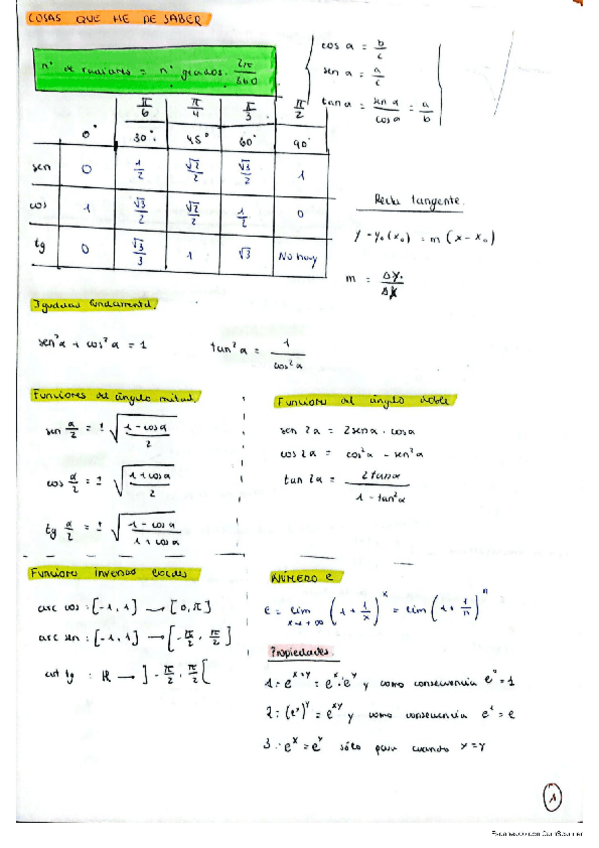 COSAS QUE HE DE SABER
nº de radianes = nº grados. 2π/360
cos a = b/c
sen a = a/c
tan a = sen a/cos a = a/b
π/6 π/4 π/3 π/2
0° 30° 45° 60° 90°
sen 0 1/2 √2/2 √3/2 1
cos 1 √3/2 √2/2 1/2 0
tg 0 √3/3 1 √3 No hay
Recta tangente.
y - y₀(x₀) = m (x - x₀)
m = Δy/Δx
Igualdad fundamental.
sen²α + cos²α = 1 tan²α = 1/cos²α
Funciones del ángulo mitad.
sen α/2 = ± √(1 - cos α/2)
cos α/2 = ± √(1 + cos α/2)
tg α/2 = ± √(1 - cos α/1 + cos α)
Funciones del ángulo doble
sen 2a = 2 sen a · cos a
cos 2a = cos²a - sen²a
tan 2a = 2 tan a/1 - tan²a
Funciones inversas
arc cos : [-1, 1] → [0, π]
arc sen : [-1, 1] → [-π/2, π/2]
arc tg : ℝ → ]-π/2, π/2[
NÚMERO e
e = lim x→+∞ (1 + 1/x)ˣ = lim (1 + 1/n)ⁿ
Propiedades.
1: eˣ⁺ʸ = eˣ · eʸ y como consecuencia = 1
2: (eˣ)ʸ = eˣʸ y como consecuencia = e
3: eˣ = eʸ sólo para cuando x = y
1
Escaneado con CamScanner